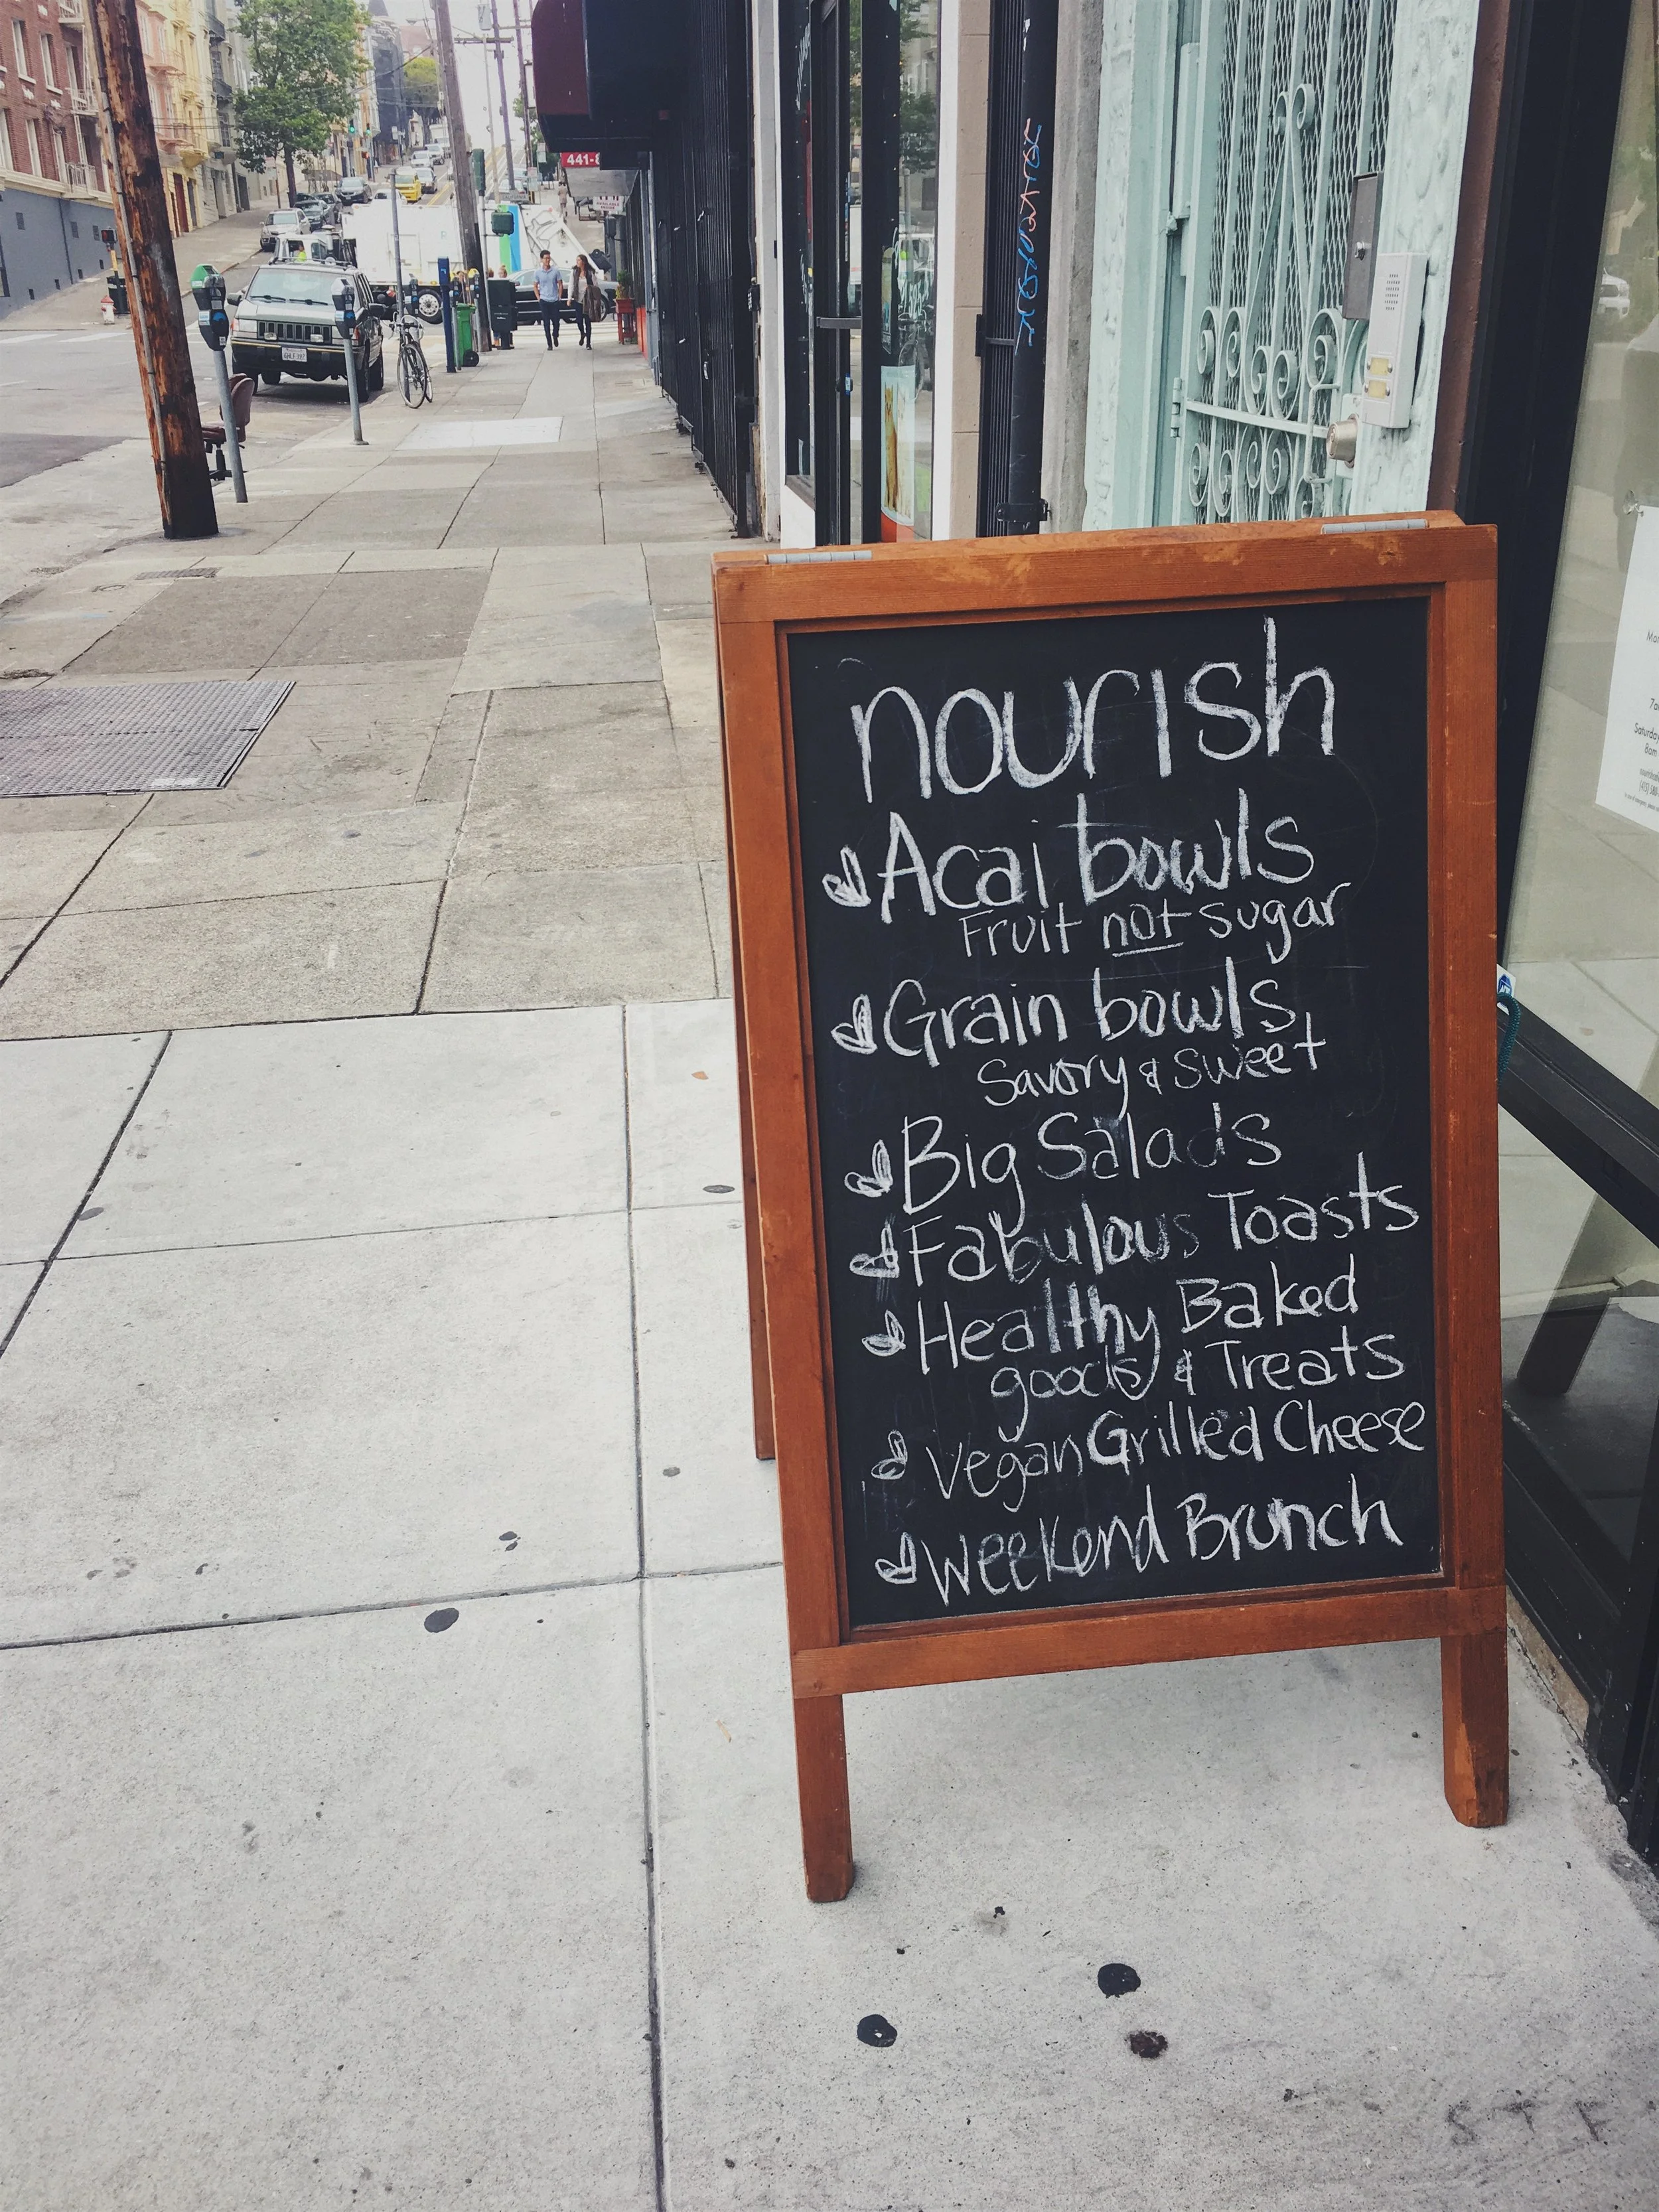 nourish
Acai bowls
Fruit not sugar
Grain bowls
Savory & sweet
Big Salads
Fabulous Toasts
Healthy Baked
goods & Treats
Vegan Grilled Cheese
Weekend Brunch
441-
Saturday
8am
STF